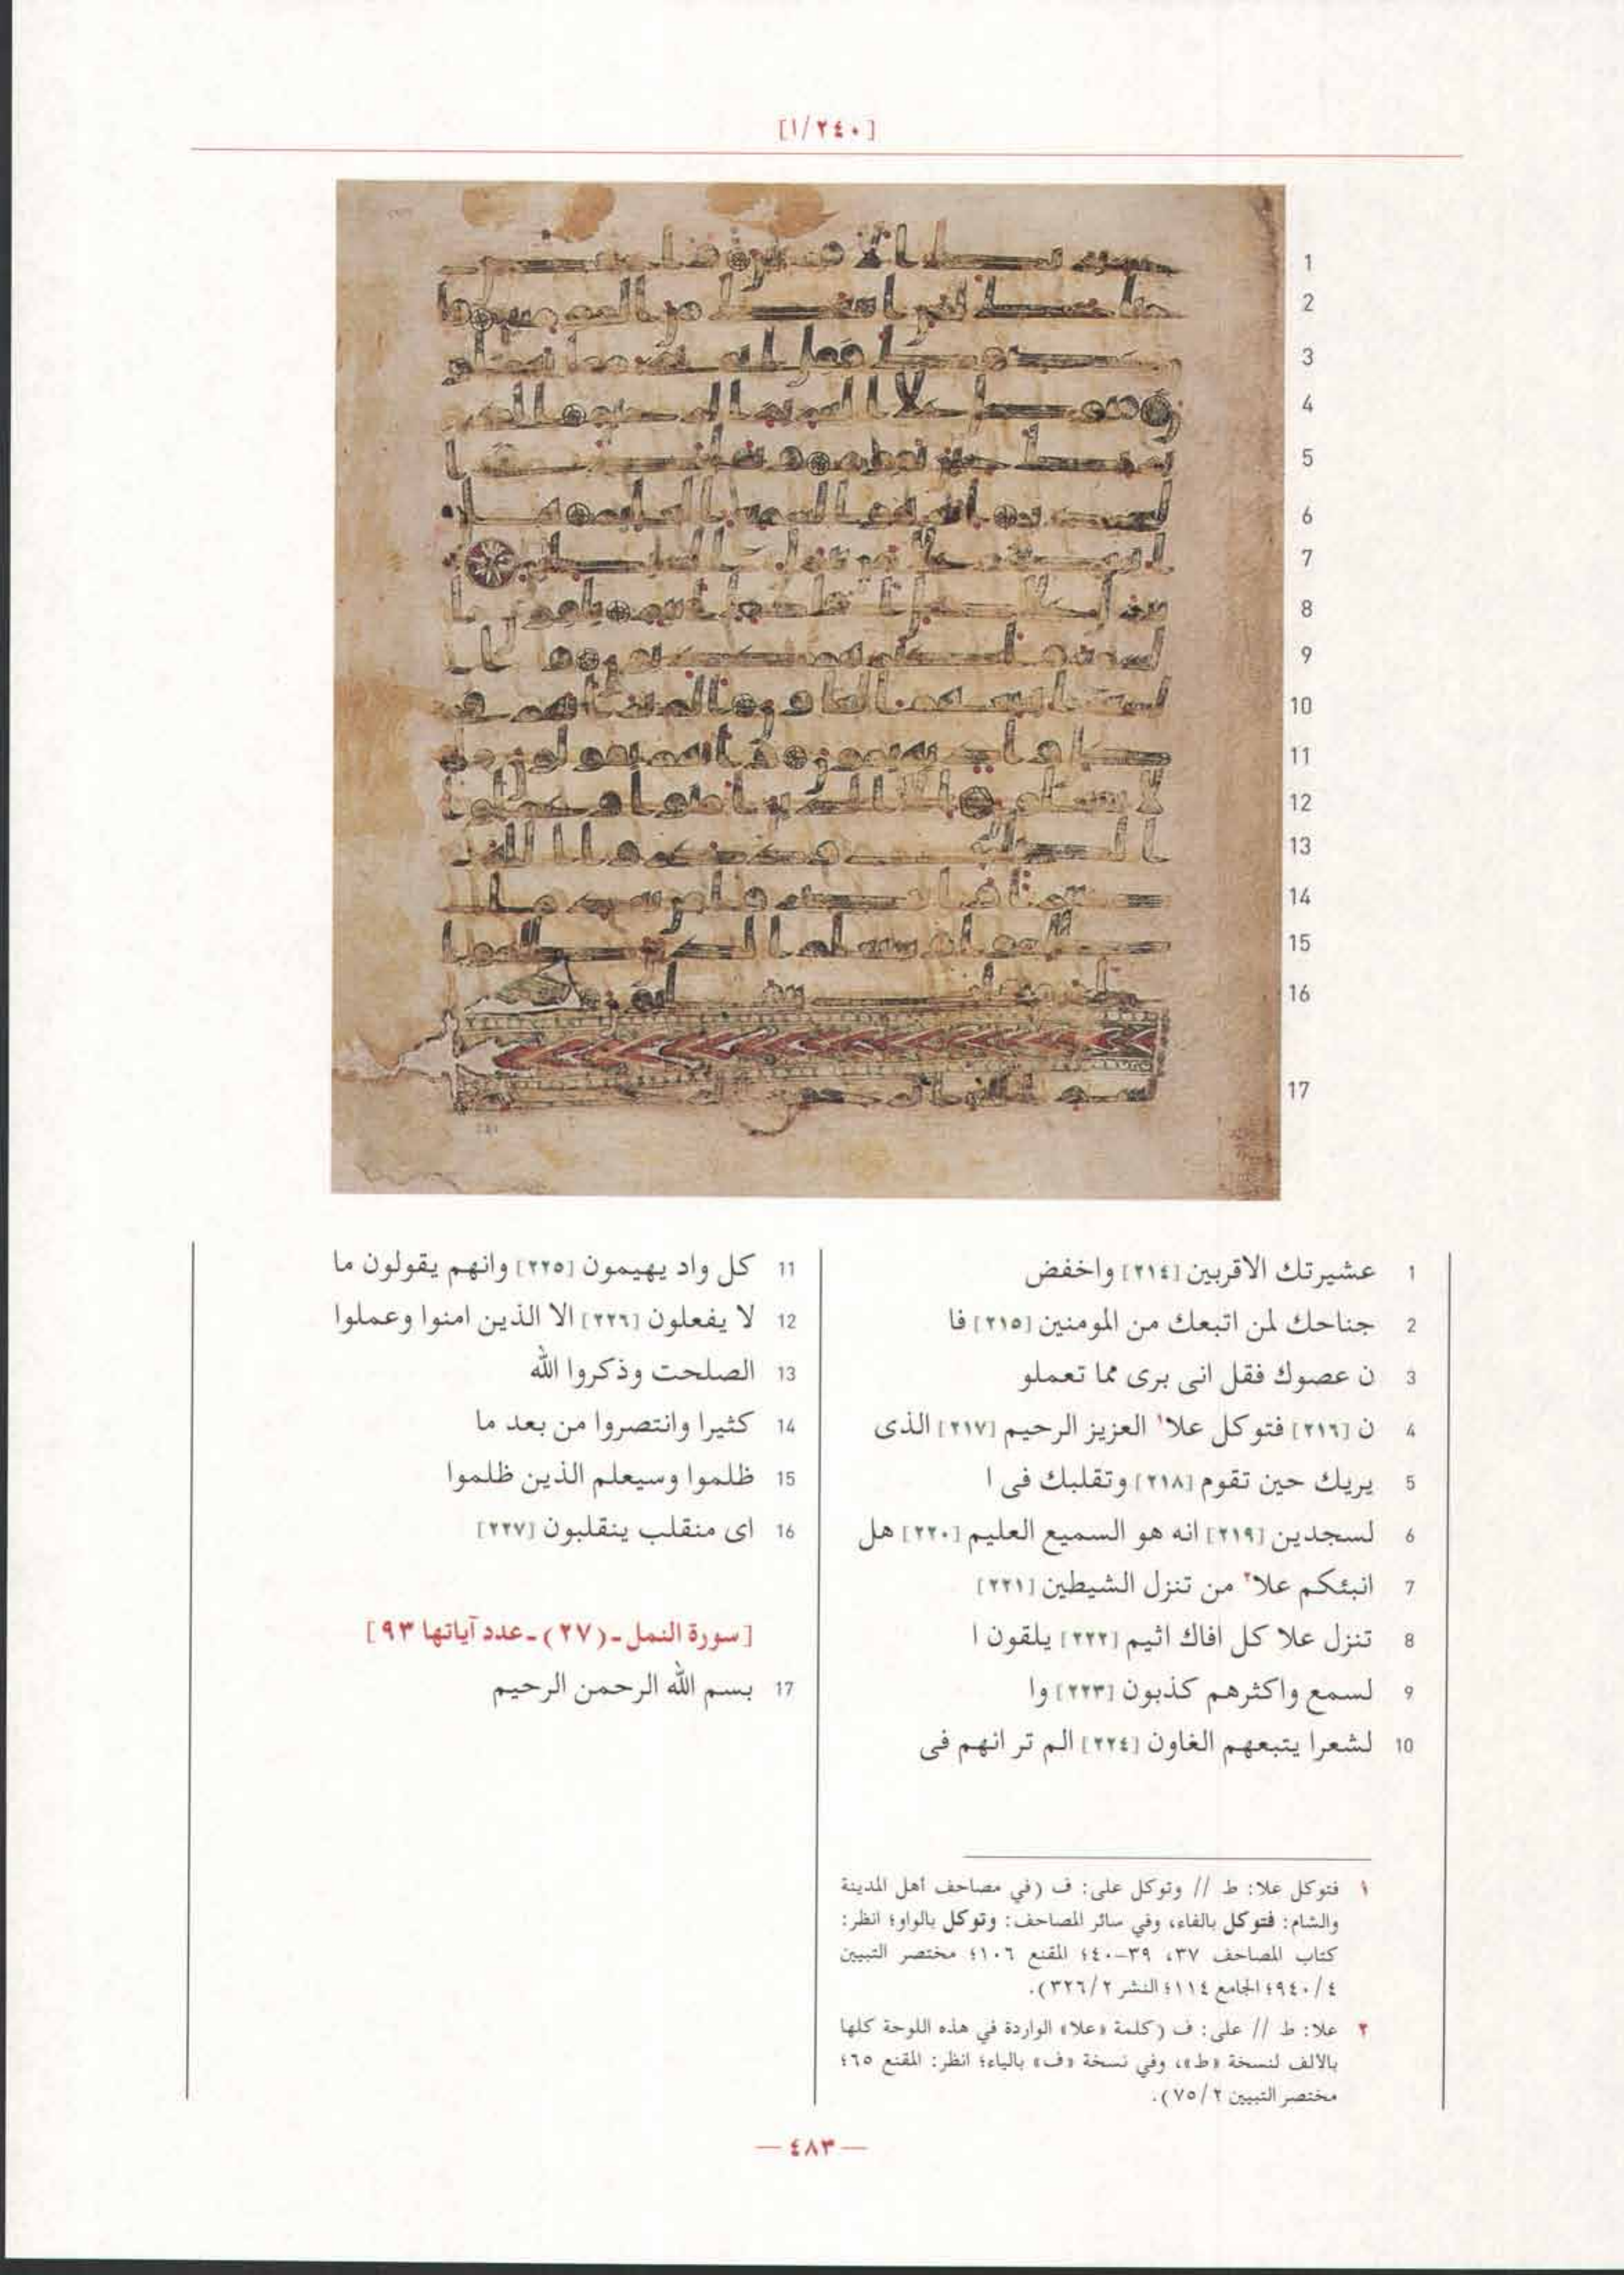 [١/٢٤٠]
1
2
3
4
5
6
7
8
9
10
11
12
13
14
15
16
17
1 عشيرتك الاقربين [٢١٤] واخفض
2 جناحك لمن اتبعك من المومنين [٢١٥] فا
3 ن عصوك فقل انى برى مما تعملو
4 ن [٢١٦] فتوكل علا١ العزيز الرحيم [٢١٧] الذى
5 يريك حين تقوم [٢١٨] وتقلبك فى ا
6 لسجدين [٢١٩] انه هو السميع العليم [٢٢٠] هل
7 انبئكم علا٢ من تنزل الشيطين [٢٢١]
8 تنزل علا كل افاك اثيم [٢٢٢] يلقون ا
9 لسمع واكثرهم كذبون [٢٢٣] وا
10 لشعرا يتبعهم الغاون [٢٢٤] الم تر انهم فى
11 كل واد يهيمون [٢٢٥] وانهم يقولون ما
12 لا يفعلون [٢٢٦] الا الذين امنوا وعملوا
13 الصلحت وذكروا الله
14 كثيرا وانتصروا من بعد ما
15 ظلموا وسيعلم الذين ظلموا
16 اى منقلب ينقلبون [٢٢٧]
[سورة النمل ـ (٢٧) ـ عدد آياتها ٩٣]
17 بسم الله الرحمن الرحيم
١ فتوكل علا: ط // وتوكل على: ف (في مصاحف أهل المدينة
والشام: فتوكل بالفاء، وفي سائر المصاحف: وتوكل بالواو؛ انظر:
كتاب المصاحف ٣٧، ٣٩-٤٠؛ المقنع ١٠٦؛ مختصر التبيين
٤/ ٩٤٠؛ الجامع ١١٤؛ النشر ٢/ ٣٢٦).
٢ علا: ط // على: ف (كلمة «علا» الواردة في هذه اللوحة كلها
بالألف لنسخة «ط»، وفي نسخة «ف» بالياء؛ انظر: المقنع ٦٥؛
مختصر التبيين ٢/ ٧٥).
— ٤٨٣ —